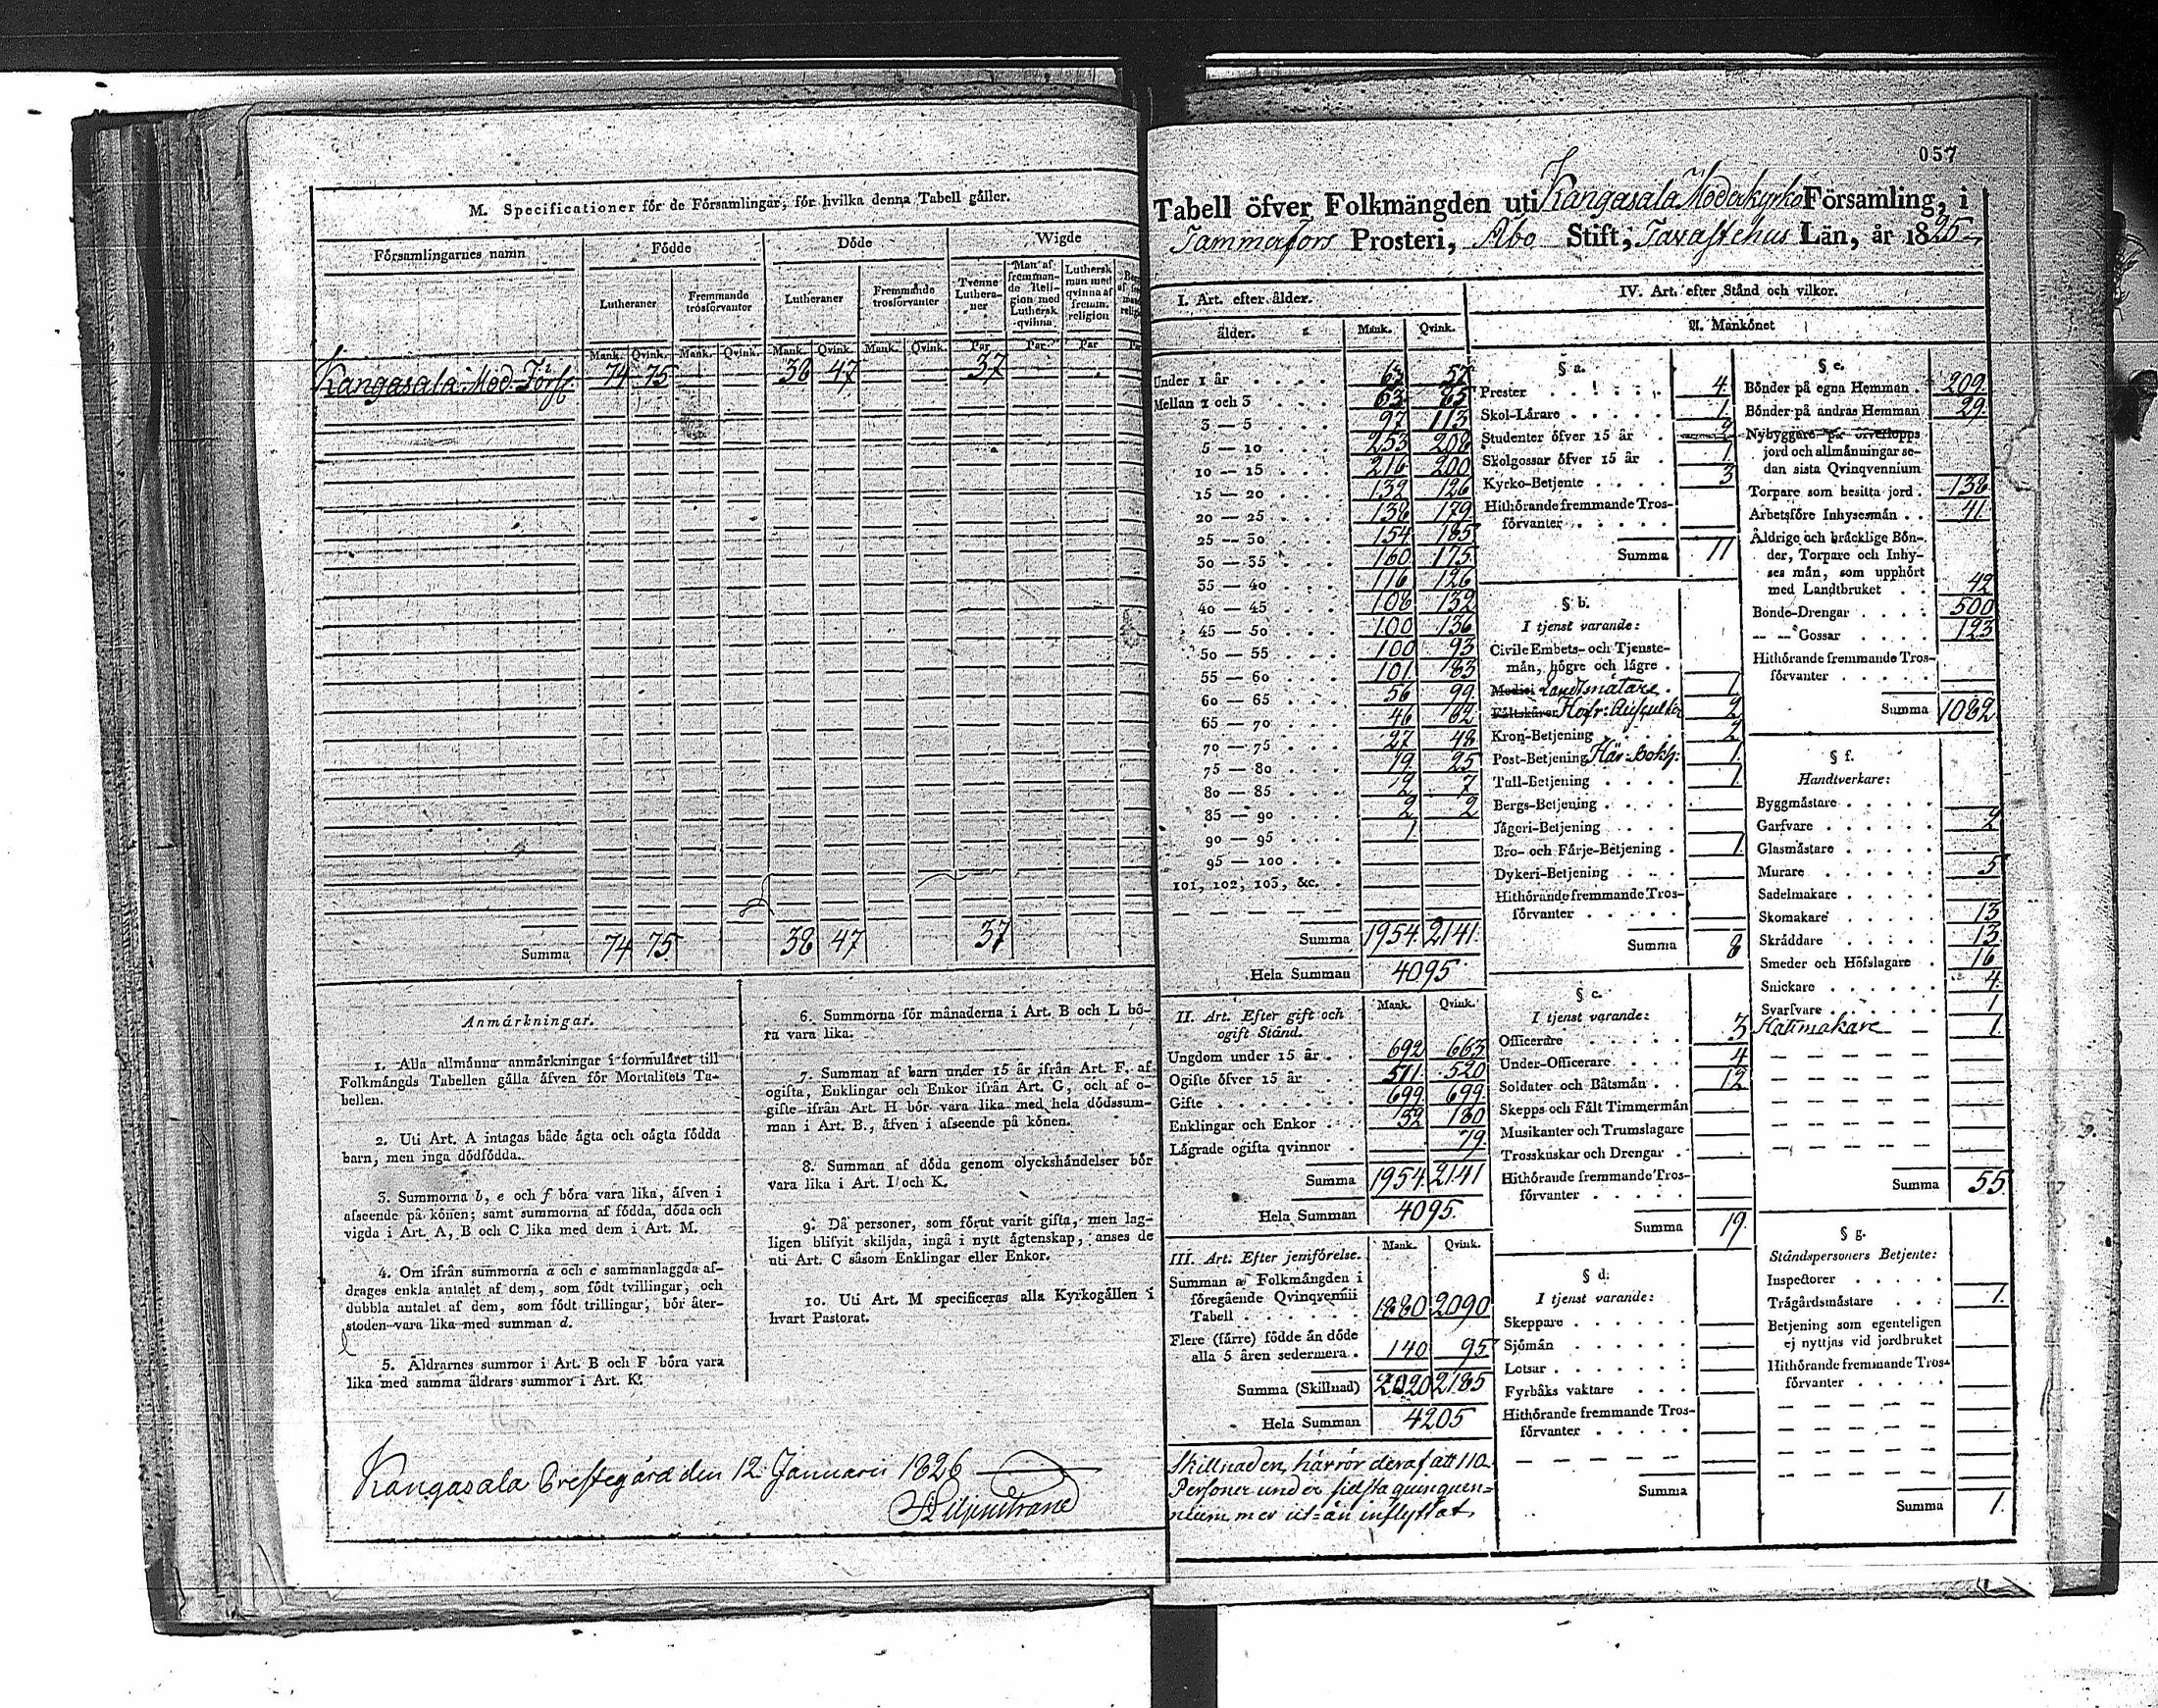 M. Specificationer för de Församlingar, för hvilka denna Tabell gäller.
Församlingarnes namn Födde Döde Wigde
Lutheraner Fremmande trosförvanter Lutheraner Fremmande trosförvanter Tvenne Lutheraner Man af fremmande Religion med Luthersk qvinna Luthersk man med qvinna af fremm. religion
Mank. Qvink. Mank. Qvink. Mank. Qvink. Mank. Qvink. Par Par Par
Kangasala Mod. Förs. 74 75 38 47 37
Summa 74 75 38 47 37
Anmärkningar.
1. Alla allmänna anmärkningar i formuläret till
Folkmängds Tabellen gälla äfven för Mortalitets Ta-
bellen.
2. Uti Art. A intagas både ägta och oägta födda
barn, men inga dödfödda.
3. Summorna b, e och f böra vara lika, äfven i
afseende på könen; samt summorna af födda, döda och
vigda i Art. A, B och C lika med dem i Art. M.
4. Om ifrån summorna a och c sammanlaggda af-
drages enkla antalet af dem, som födt tvillingar, och
dubbla antalet af dem, som födt trillingar, bör åter-
stoden vara lika med summan d.
5. Åldrarnes summor i Art. B och F böra vara
lika med samma åldrars summor i Art. K.
6. Summorna för månaderna i Art. B och L bö-
ra vara lika.
7. Summan af barn under 15 år ifrån Art. F, af
ogifta, Enklingar och Enkor ifrån Art. G, och af o-
gifte ifrån Art. H bör vara lika med hela dödssum-
man i Art. B., äfven i afseende på könen.
8. Summan af döda genom olyckshändelser bör
vara lika i Art. I och K.
9. Då personer, som förut varit gifta, men lag-
ligen blifvit skiljda, ingå i nytt ägtenskap, anses de
uti Art. C såsom Enklingar eller Enkor.
10. Uti Art. M specificeras alla Kyrkogällen i
hvart Pastorat.
Kangasala Prestegård den 12 Januarii 1826
057
Tabell öfver Folkmängden uti Kangasala Moderkyrko Församling, i
Tammerfors Prosteri, Åbo Stift, Tavastehus Län, år 1825
I. Art. efter ålder.
ålder. Mank. Qvink.
Under 1 år 57
Mellan 1 och 3 63 85
3 — 5 97 113
5 — 10 253 208
10 — 15 216 200
15 — 20 132 126
20 — 25 138 179
25 — 30 154 185
30 — 35 160 175
35 — 40 116 126
40 — 45 108 132
45 — 50 100 136
50 — 55 100 93
55 — 60 101 183
60 — 65 56 99
65 — 70 46 62
70 — 75 27 48
75 — 80 19 25
80 — 85 7
85 — 90 2 2
90 — 95 1
95 — 100
101, 102, 103, &c.
Summa 1954 2141
Hela Summan 4095
II. Art. Efter gift och ogift Stånd. Mank. Qvink.
Ungdom under 15 år 692 663
Ogifte öfver 15 år 511 520
Gifte 699 699
Enklingar och Enkor 52 180
Lägrade ogifta qvinnor 79
Summa 1954 2141
Hela Summan 4095
III. Art. Efter jemförelse. Mank. Qvink.
Summan af Folkmängden i
föregående Qvinqvennii
Tabell 1880 2090
Flere (färre) födde än döde
alla 5 åren sedermera 140 95
Summa (Skillnad) 2020 2185
Hela Summan 4205
Skillnaden härrör deraf att 110
Personer under sidsta quinquen=
nium mer ut= än inflyttat
IV. Art. efter Stånd och vilkor.
A. Mankönet
§ a.
Prester 4
Skol-Lärare 1
Studenter öfver 15 år 2
Skolgossar öfver 15 år 1
Kyrko-Betjente 3
Hithörande fremmande Tros-
förvanter
Summa 11
§ b.
I tjenst varande:
Civile Embets- och Tjenste-
män, högre och lägre
Medici Landtmätare 1
Fältskärer Hofr: Auscultor 2
Kron-Betjening 2
Post-Betjening Här. Bokh: 1
Tull-Betjening 1
Bergs-Betjening
Jägeri-Betjening
Bro- och Färje-Betjening 1
Dykeri-Betjening
Hithörande fremmande Tros-
förvanter
Summa 8
§ c.
I tjenst varande:
Officerare 3
Under-Officerare 4
Soldater och Båtsmän 12
Skepps och Fält Timmermän
Musikanter och Trumslagare
Trosskuskar och Drengar
Hithörande fremmande Tros-
förvanter
Summa 19
§ d.
I tjenst varande:
Skeppare
Sjömän
Lotsar
Fyrbåks vaktare
Hithörande fremmande Tros-
förvanter
Summa
§ e.
Bönder på egna Hemman 209
Bönder på andras Hemman 29
Nybyggare på öfverlopps
jord och allmänningar se-
dan sista Qvinqvennium
Torpare som besitta jord 138
Arbetsföre Inhysesmän 41
Åldrige och bräcklige Bön-
der, Torpare och Inhy-
ses män, som upphört
med Landtbruket 42
Bonde-Drengar 500
— — Gossar 123
Hithörande fremmande Tros-
förvanter
Summa 1082
§ f.
Handtverkare:
Byggmästare
Garfvare 2
Glasmästare
Murare 5
Sadelmakare
Skomakare 13
Skräddare 13
Smeder och Hofslagare 16
Snickare 4
Svarfvare 1
Hattmakare 1
Summa 55
§ g.
Ståndspersoners Betjente:
Inspectorer
Trägårdsmästare 1
Betjening som egenteligen
ej nyttjas vid jordbruket
Hithörande fremmande Tros-
förvanter
Summa 1